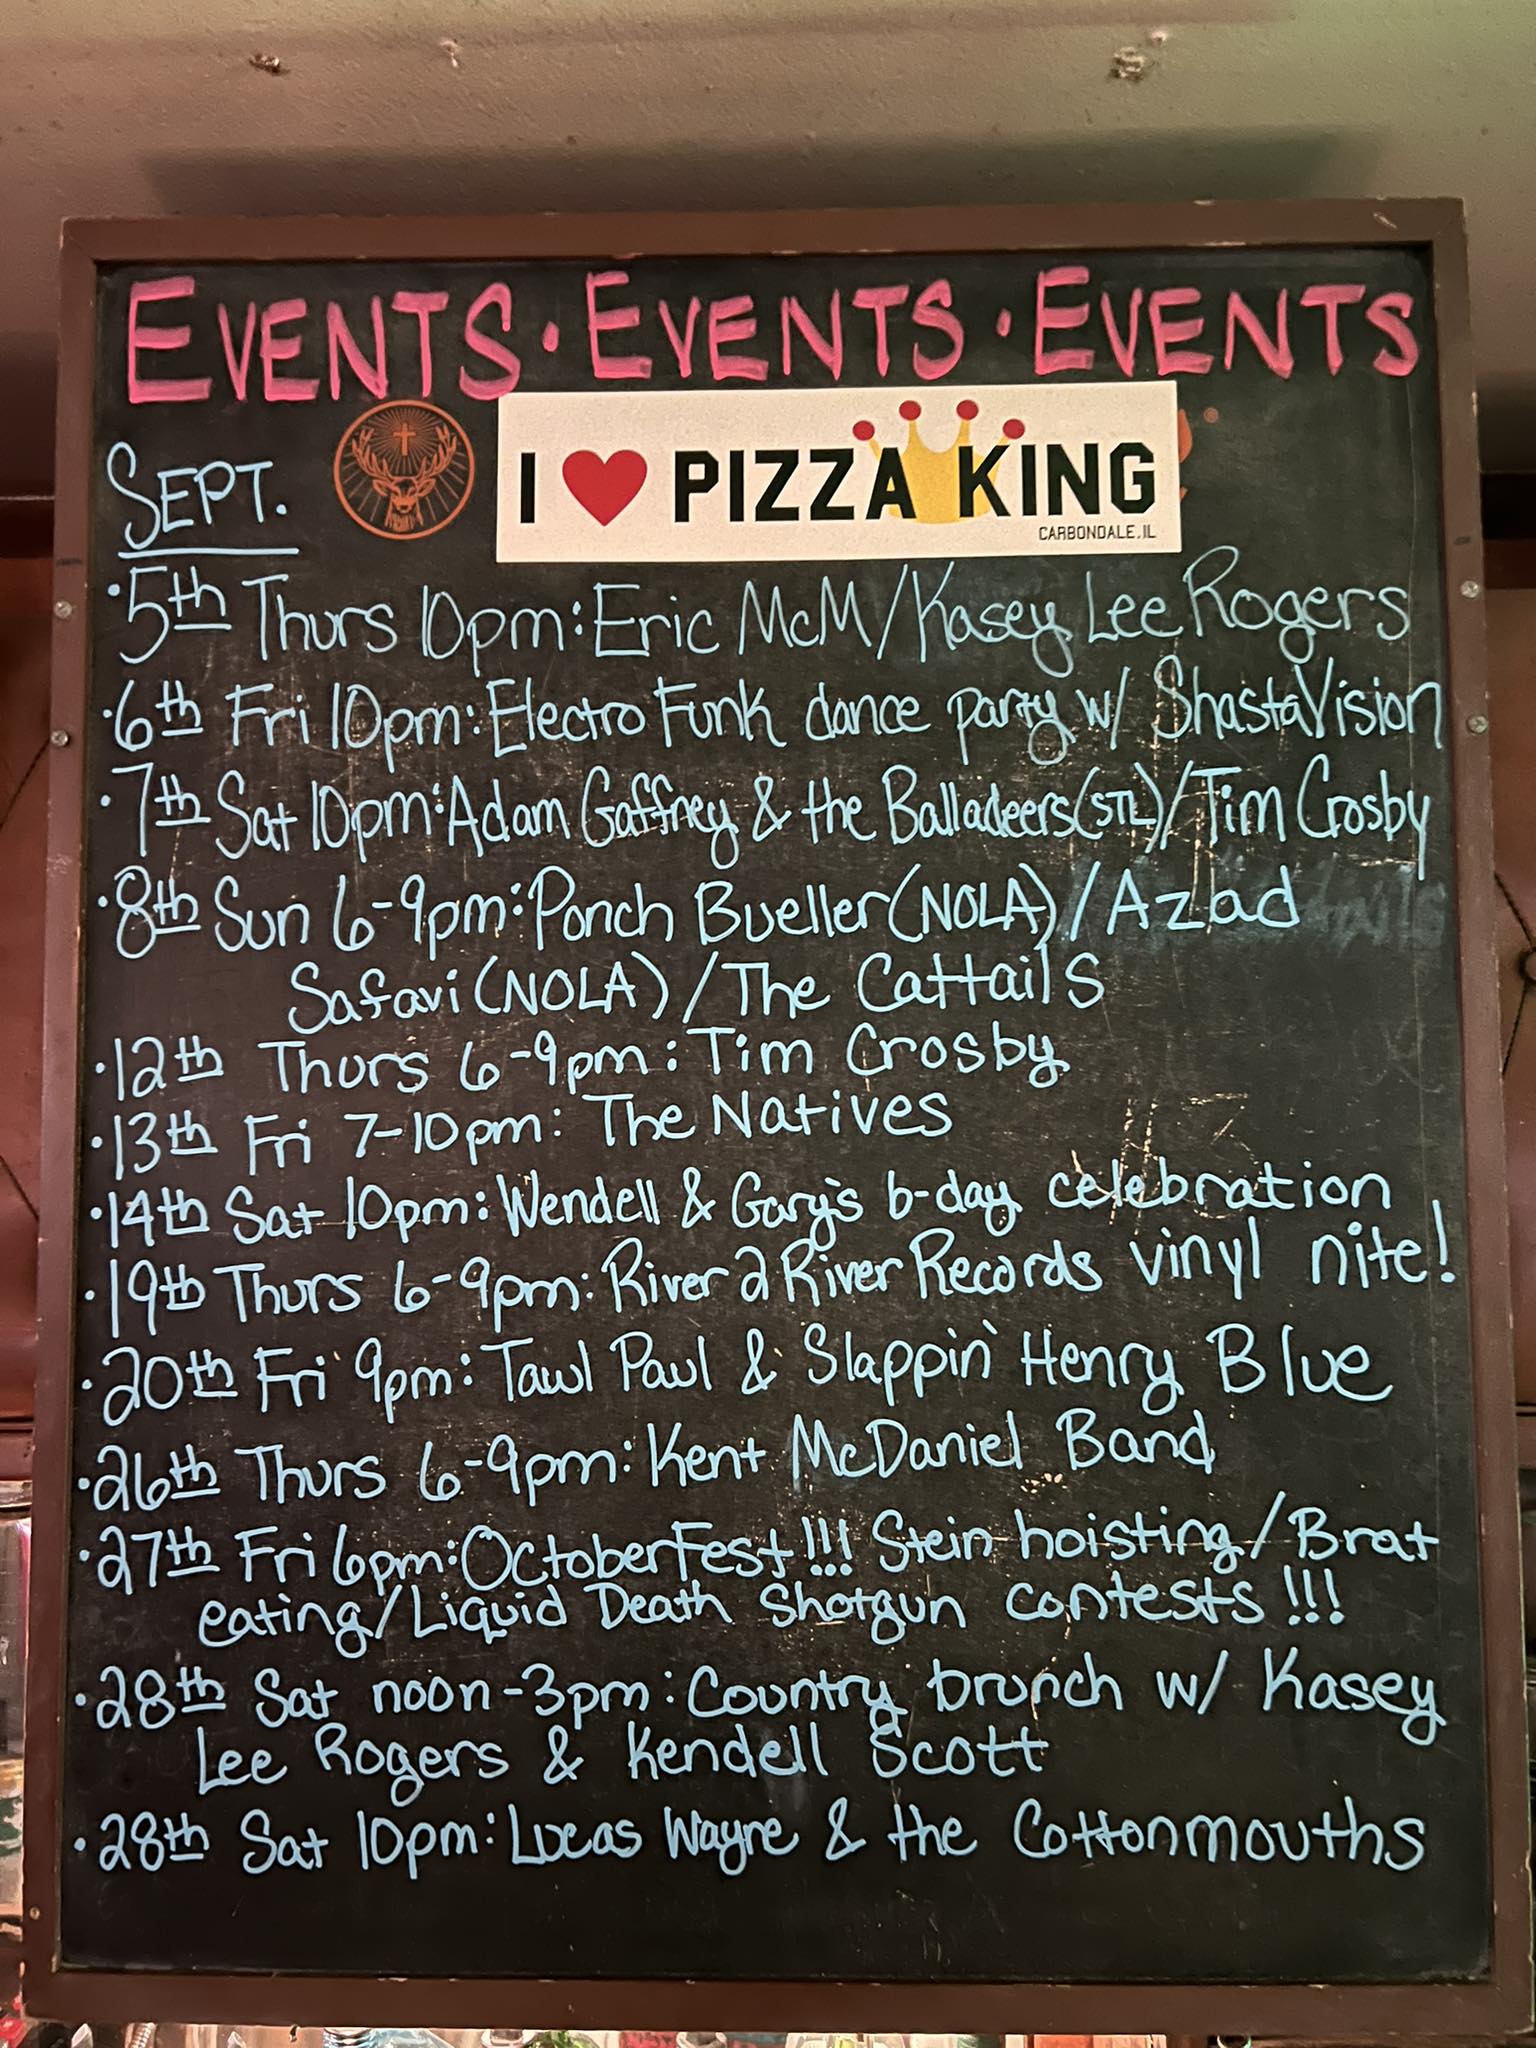 EVENTS · EVENTS · EVENTS
SEPT.
I ♥ PIZZA KING
CARBONDALE, IL
·5th Thurs 10pm: Eric McM/Kasey Lee Rogers
·6th Fri 10pm: Electro Funk dance party w/ ShastaVision
·7th Sat 10pm: Adam Gaffney & the Balladeers (STL)/Tim Crosby
·8th Sun 6-9pm: Ponch Bueller (NOLA)/Azad
Safavi (NOLA)/The Cattails
·12th Thurs 6-9pm: Tim Crosby
·13th Fri 7-10pm: The Natives
·14th Sat 10pm: Wendell & Gary's b-day celebration
·19th Thurs 6-9pm: River 2 River Records vinyl nite!
·20th Fri 9pm: Tawl Paul & Slappin' Henry Blue
·26th Thurs 6-9pm: Kent McDaniel Band
·27th Fri 6pm: OctoberFest!!! Stein hoisting/Brat
eating/Liquid Death Shotgun contests!!!
·28th Sat noon-3pm: Country brunch w/ Kasey
Lee Rogers & Kendell Scott
·28th Sat 10pm: Lucas Wayne & the Cottonmouths